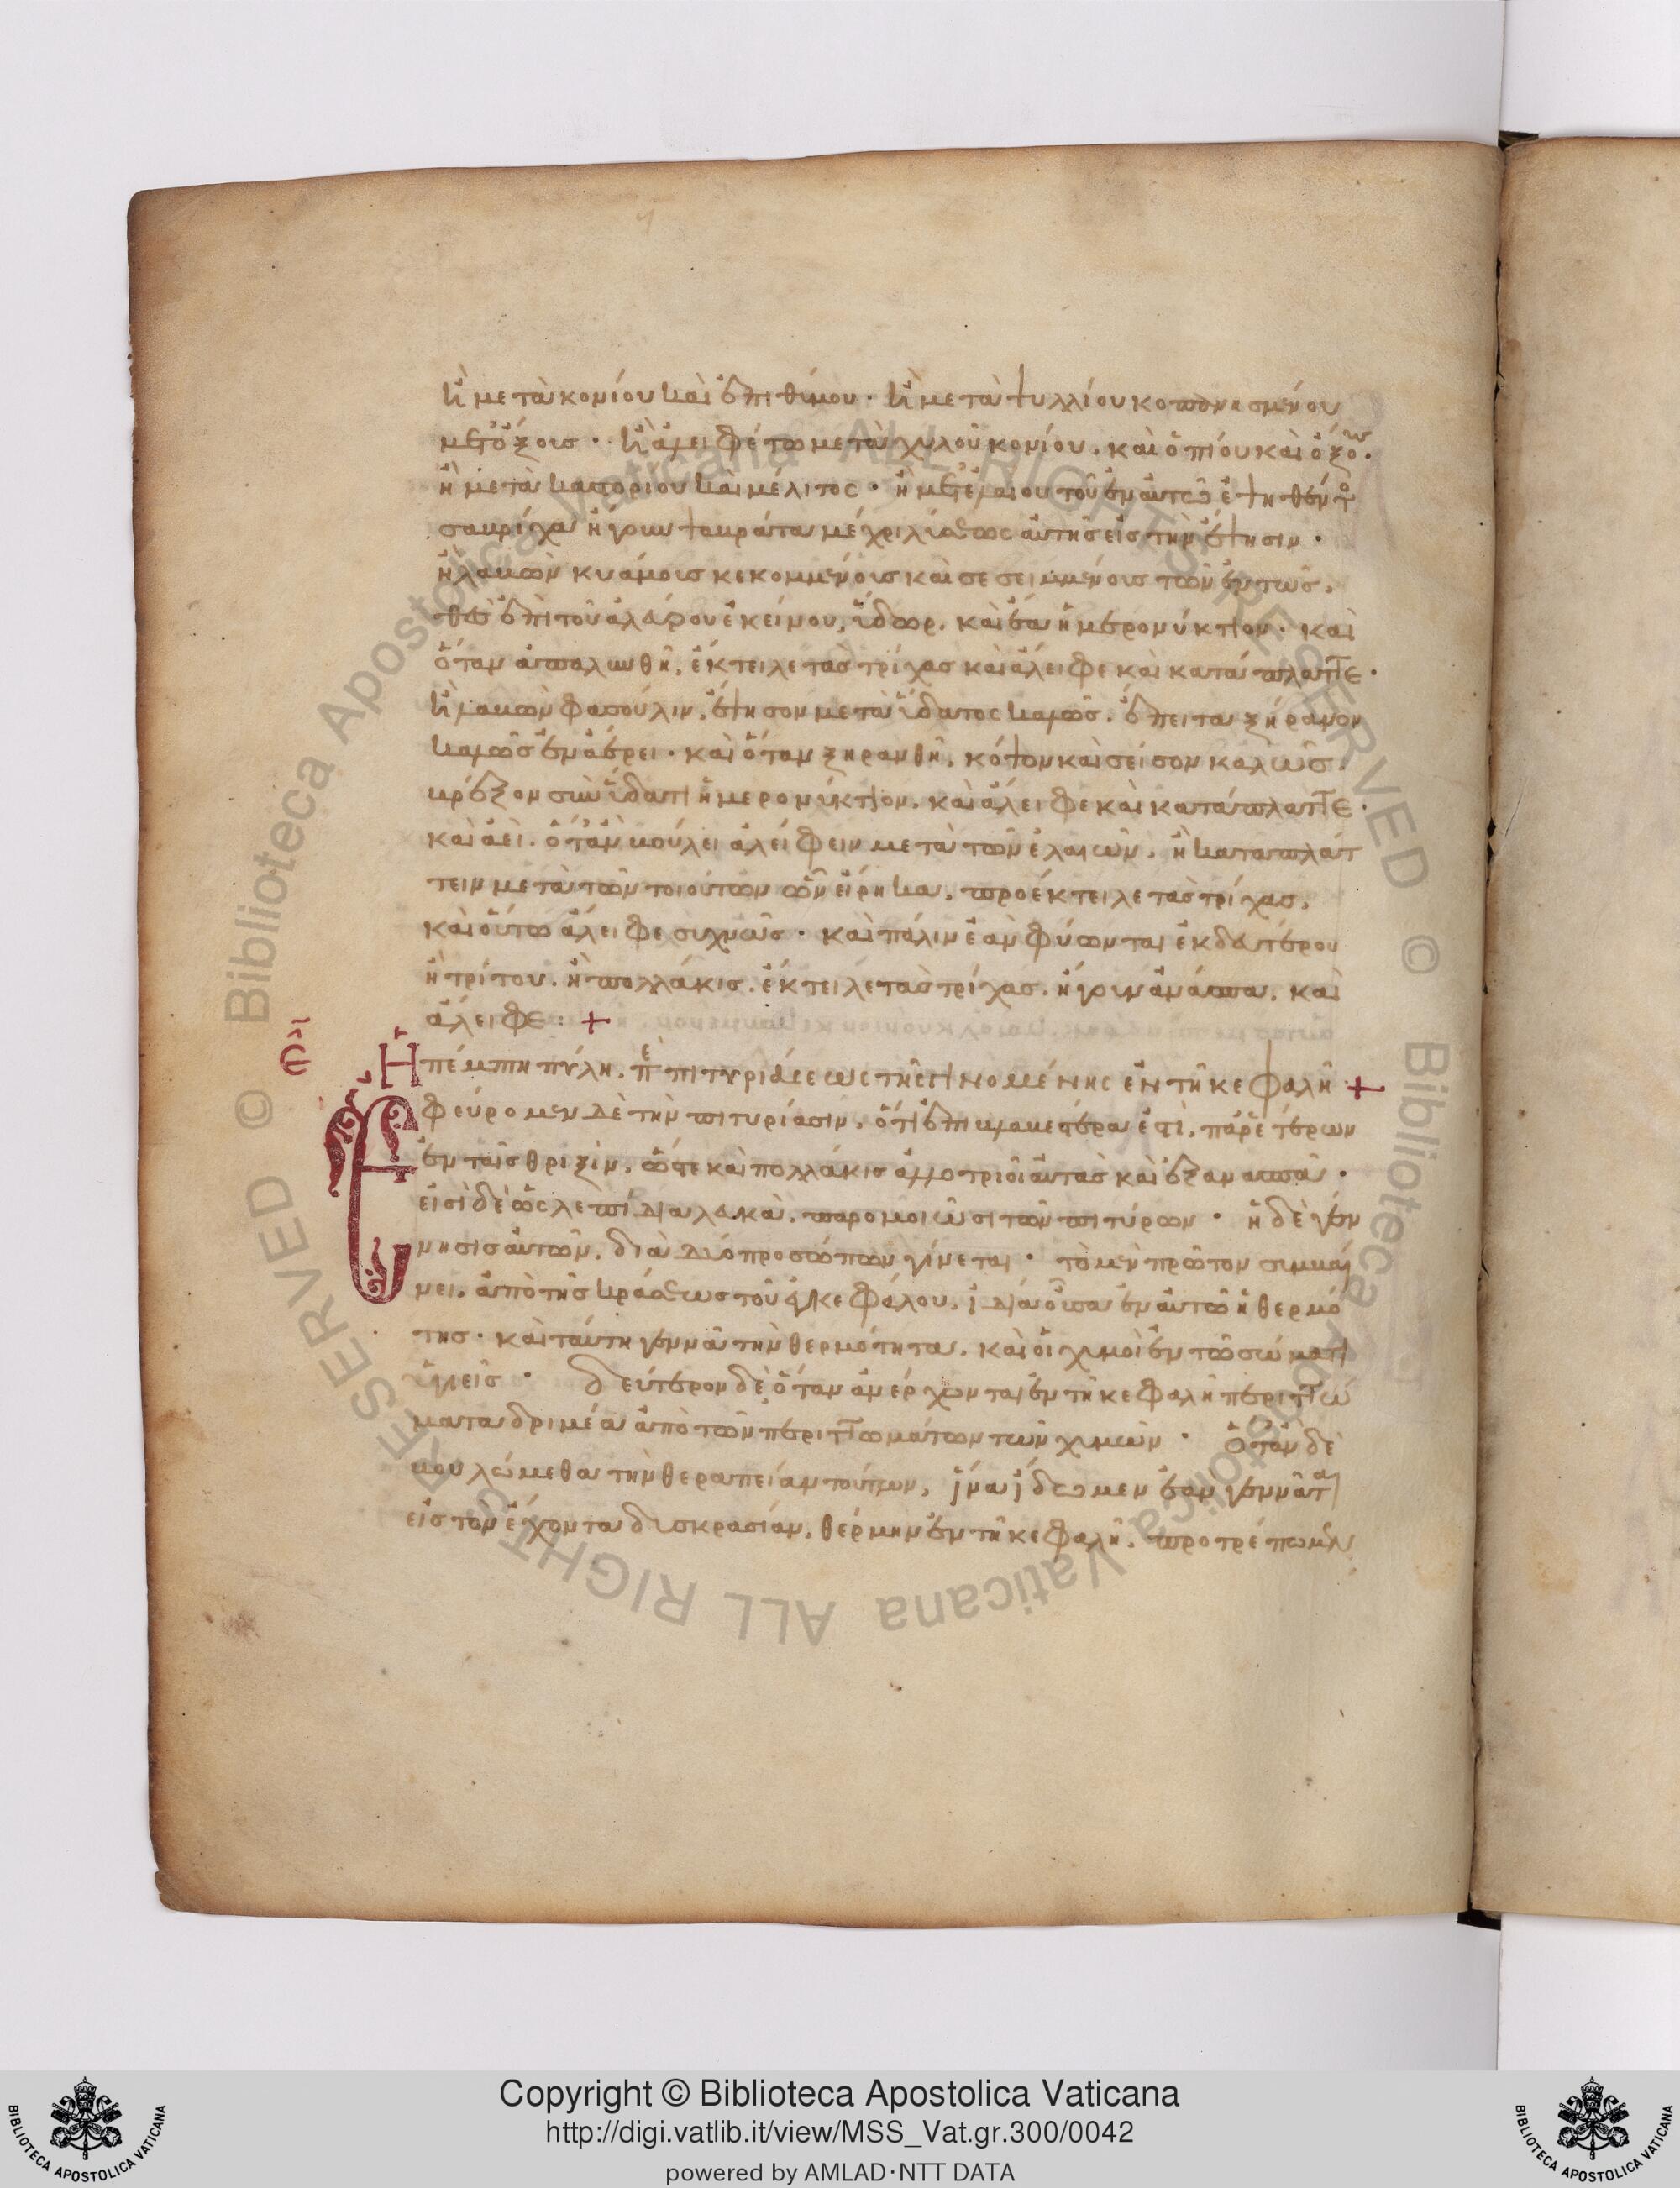 ἢ μετὰ κονίου καὶ ἐπιθύμου · ἢ μετὰ ψυλλίου κοπανισμένου
μετ ὄξους · ἢ ἀλειφέτω μετὰ χυλοῦ κονίου . καὶ ὀπίου καὶ ὄξους .
ἢ μετὰ καστορίου καὶ μέλιτος · ἢ μετ ἐλαίου τοῦ ἐν αὐτῶ ἑψηθέντος
σαυρίχα ἤγουν μέχρι λύσεως αὐτῆς εἰς τὴν ἕψησιν ·
ἢ λαβὼν κυάμοις κεκομμένοις καὶ σεσεισμένοις τῶν ἐντὸς .
θὲς ἐπὶ τοῦ ἀλεύρου ἐκείνου , ὕδωρ . καὶ ἔα ἡμερονύκτιον · καὶ
ὅταν ἁπαλωθῆ , ἔκτειλε τὰς τρίχας καὶ ἄλειφε καὶ κατάπλαττε ·
ἢ λαβὼν φασούλιν , ἕψησον μετὰ ὕδατος καλῶς . ἔπειτα ξήρανον
καλῶς ἐν ἀέρει · καὶ ὅταν ξηρανθῆ , κόψον καὶ σεῖσον καλῶς .
βρέξον σὺν ὕδατι ἡμερονύκτιον . καὶ ἄλειφε καὶ κατάπλαττε ·
καὶ ἀεὶ . ὅταν βούλει ἀλείφειν μετὰ τῶν ἐλαιῶν , ἢ καταπλάτ
τειν μετὰ τῶν τοιούτων ὧν εἴρηκα , προέκτειλε τὰς τρίχας ,
καὶ οὕτω ἄλειφε συχνῶς · καὶ πάλιν ἐὰν φύωνται ἐκ δευτέρου
ἢ τρίτου . ἢ πολλάκις . ἔκτειλε τὰς τρίχας . ἤγουν ἀνάσπα . καὶ
ἄλειφε : +
ε
Ἡ πέμπτη πύλη . πε πιτυριάσεως τῆς γινομένης ἐν τῆ κεφαλῆ +
Εφεύρομεν δὲ τὴν πιτυρίασιν , ὅτι ἐπιβλαβεστέρα ἐστὶ , παρ ἑτέρων
ἐν ταῖς θριξὶν . ὥστε καὶ πολλάκις ἀλλοτριοῖ αὐτὰς καὶ ἐξανασπᾶ ·
εἰσὶ δὲ ὡς λεπίδια λευκὰ . παρομοιῶσι τῶν πιτύρων · ἡ δὲ γέν
νησις αὐτῶν , διὰ δύο προσώπων γίνεται · τὸ μὲν πρῶτον συμβαί
νει , ἀπὸ τῆς κράσεως τοῦ ἐγκεφάλου , ἰδία οὖσα ἐν αὐτῶ ἡ θερμό
της · καὶ ταύτη γεννᾶ τὴν θερμότητα . καὶ οἱ χυμοὶ ἐν τῶ σώματι
ὑγιεῖς · δεύτερον δὲ ὅταν ἀνέρχωνται ἐν τῆ κεφαλῆ περιττώ
ματα δριμέα ἀπὸ τῶν περιττωμάτων τῶν χυμῶν · ὅταν δὲ
βουλώμεθα τὴν θεραπείαν τούτων , ἵνα ἴδωμεν ἐὰν γεννᾶται
εἰς τὸν ἔχοντα δισκρασίαν , θέρμην ἐν τῆ κεφαλῆ , προτρέπομεν
Copyright © Biblioteca Apostolica Vaticana
http://digi.vatlib.it/view/MSS_Vat.gr.300/0042
powered by AMLAD·NTT DATA
BIBLIOTECA APOSTOLICA VATICANA
BIBLIOTECA APOSTOLICA VATICANA
© Biblioteca Apostolica Vaticana ALL RIGHTS RESERVED © Biblioteca Apostolica Vaticana ALL RIGHTS RESERVED